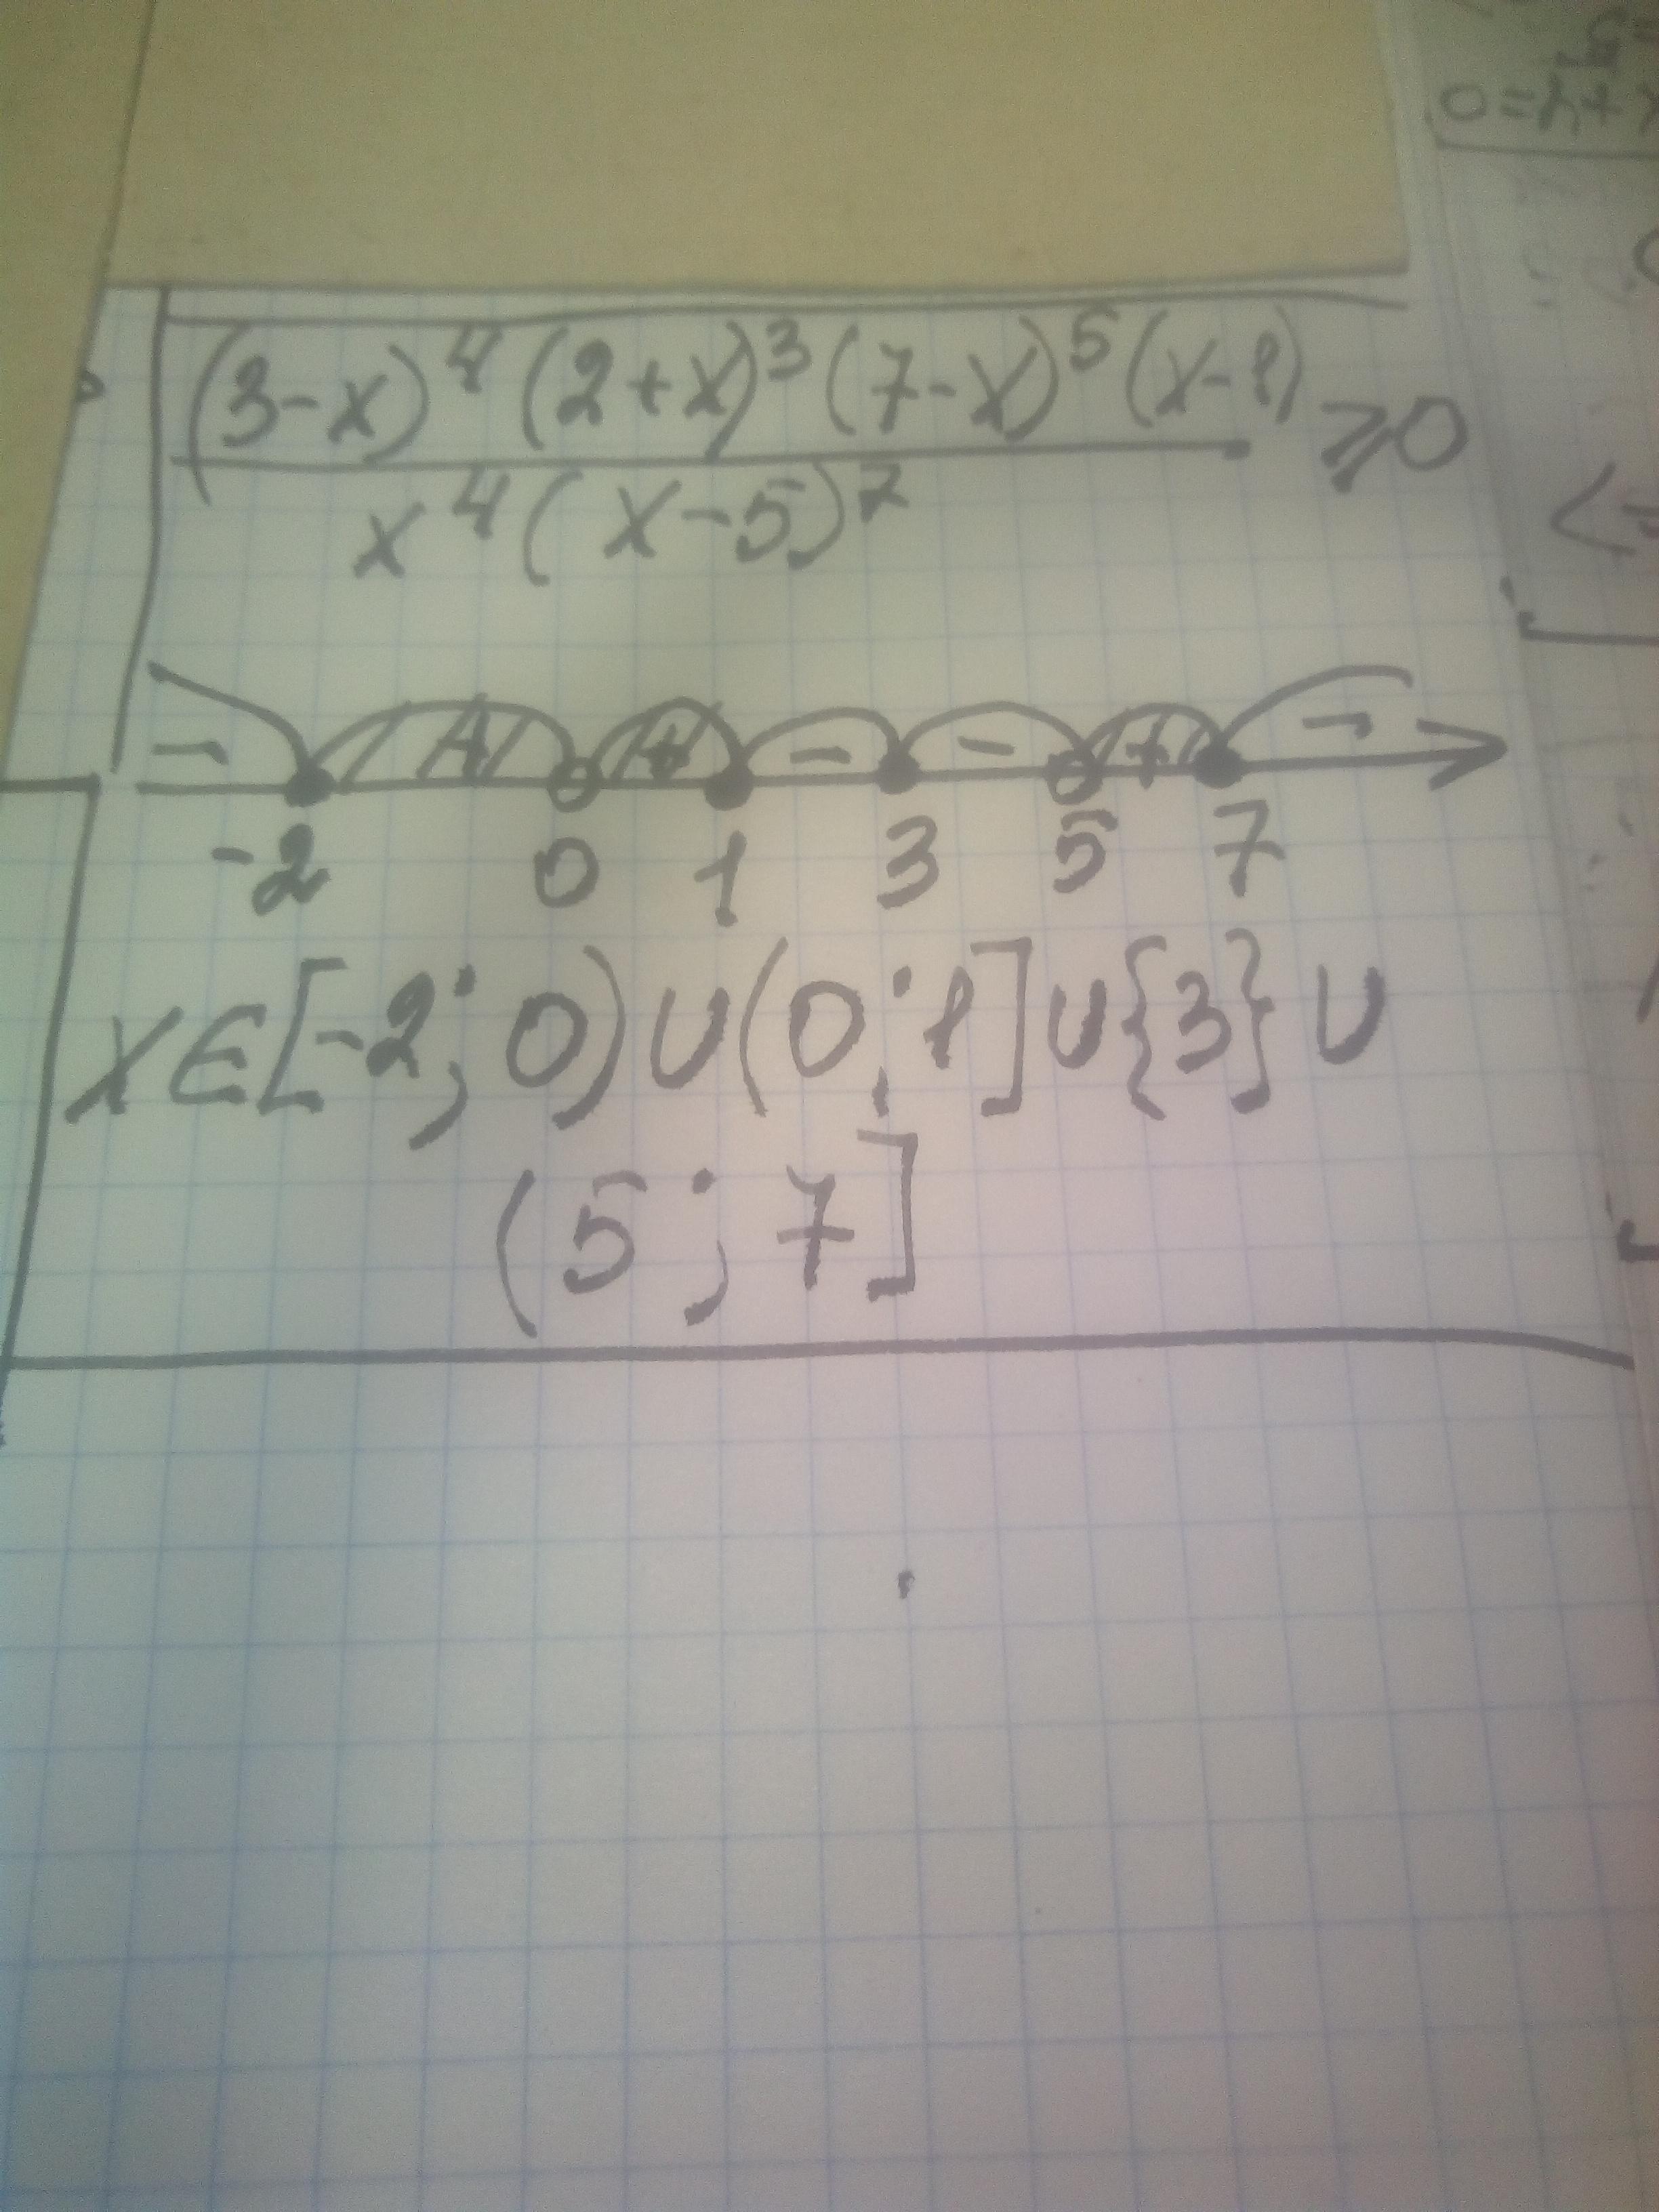 (3-x)⁴(2+x)³(7-x)⁵(x-1)
≥0
x⁴(x-5)⁷
- + + - - + -
-2 0 1 3 5 7
x∈[-2;0)∪(0;1]∪{3}∪
(5;7]
x+y=0